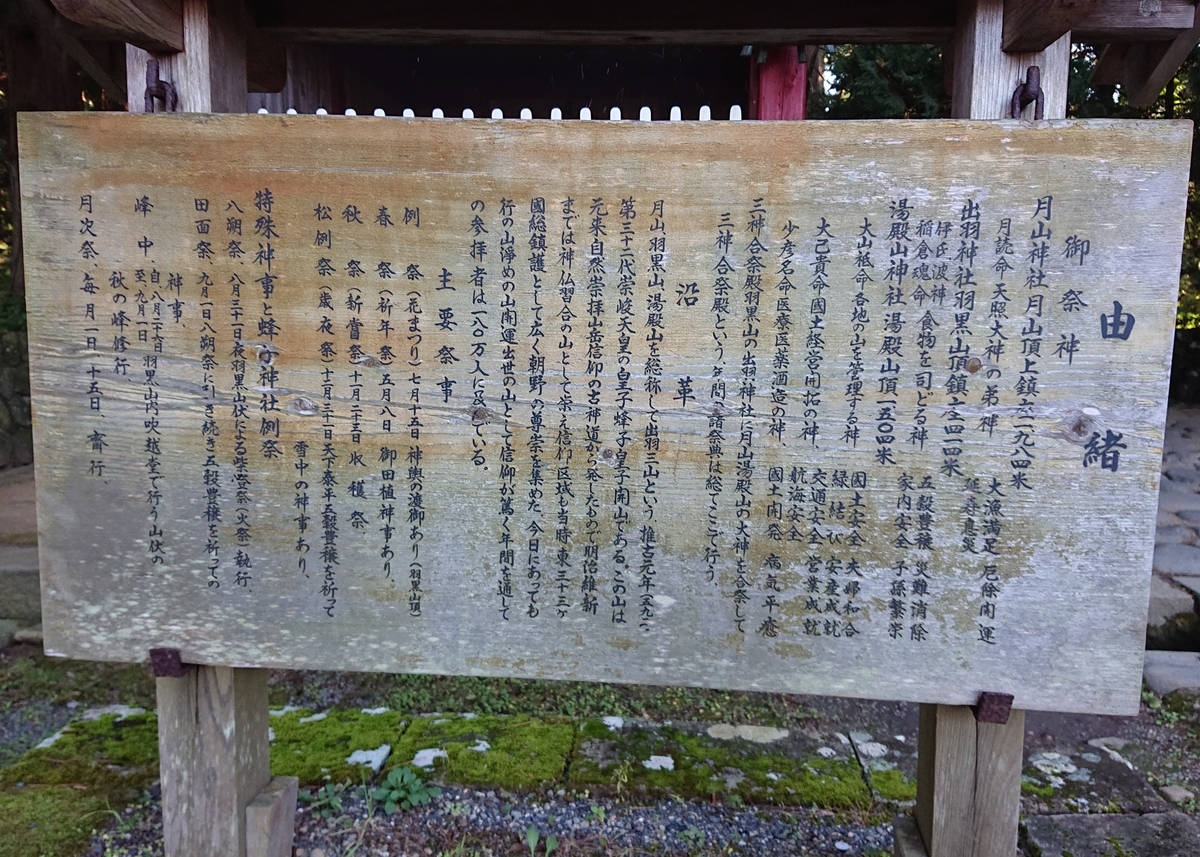 由緒
御祭神
月山神社月山頂上鎮座一九八四米
月読命 天照大神の弟神 大漁満足 厄除開運
出羽神社羽黒山頂鎮座四一四米 延寿息災
伊氐波神
稲倉魂命 食物を司どる神 五穀豊穣 災難消除
湯殿山神社湯殿山頂一五〇四米 家内安全 子孫繁栄
大山祗命 各地の山を管理する神 國土安全 夫婦和合
縁結び 安産成就
大己貴命 國土経営開拓の神、交通安全 営業成就
少彦名命 医療医薬酒造の神、航海安全
國土開発 病気平癒
三神合祭殿羽黒山の出羽神社に月山湯殿山の大神を合祭して
三神合祭殿という、年間の諸祭典は総てここで行う、
沿革
月山、羽黒山、湯殿山を総称して出羽三山という 推古元年(五九二、
第三十二代崇峻天皇の皇子蜂子皇子開山である、この山は
元来自然崇拝山岳信仰の古神道から発したもので明治維新
までは神仏習合の山として栄え信仰区域も当時東三十三ヶ
國総鎮護として広く朝野の尊崇を集めた、今日にあっても
行の山浄めの山開運出世の山として信仰が篤く年間を通して
の参拝者は一八〇万人に及でいる。
主要祭事
例祭(花まつり)七月十五日神輿の渡御あり(羽黒山頂)
春祭(祈年祭)五月八日 御田植神事あり、
秋祭(新嘗祭)十一月二十三日収穫祭、
松例祭(歳夜祭)十二月三十一日天下泰平五穀豊穣を祈って
雪中の神事あり、
特殊神事と蜂子神社例祭
八朔祭、八月三十一日夜羽黒山伏による柴燈祭(火祭)執行、
田面祭、九月一日八朔祭に引き続き五穀豊穣を祈っての
神事、
峰中 自、八月二十六日 至、九月一日 羽黒山内吹越堂で行う山伏の
秋の峰修行、
月次祭、毎月一日、十五日、斎行、